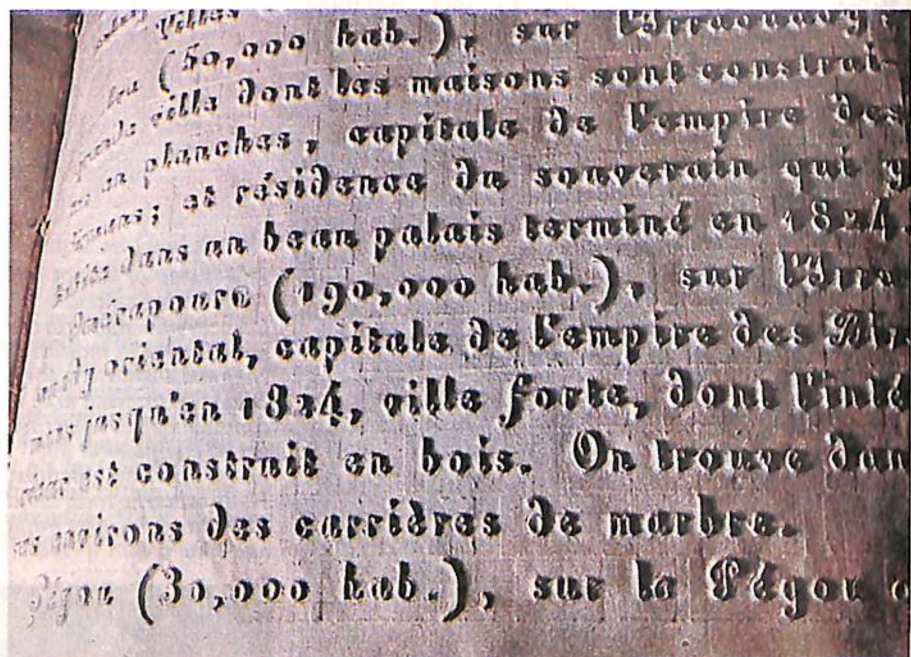 villes
(50,000 hab.), sur l'Irraouaddy,
grande ville dont les maisons sont construi-
es en planches, capitale de l'empire des
et résidence du souverain qui y
habite dans un beau palais terminé en 1824.
(190,000 hab.), sur l'Irra
oriental, capitale de l'empire des Bir
mans jusqu'en 1824, ville forte, dont l'inté
rieur est construit en bois. On trouve dan
environs des carrières de marbre.
Pégou (30,000 hab.), sur le Pégou o